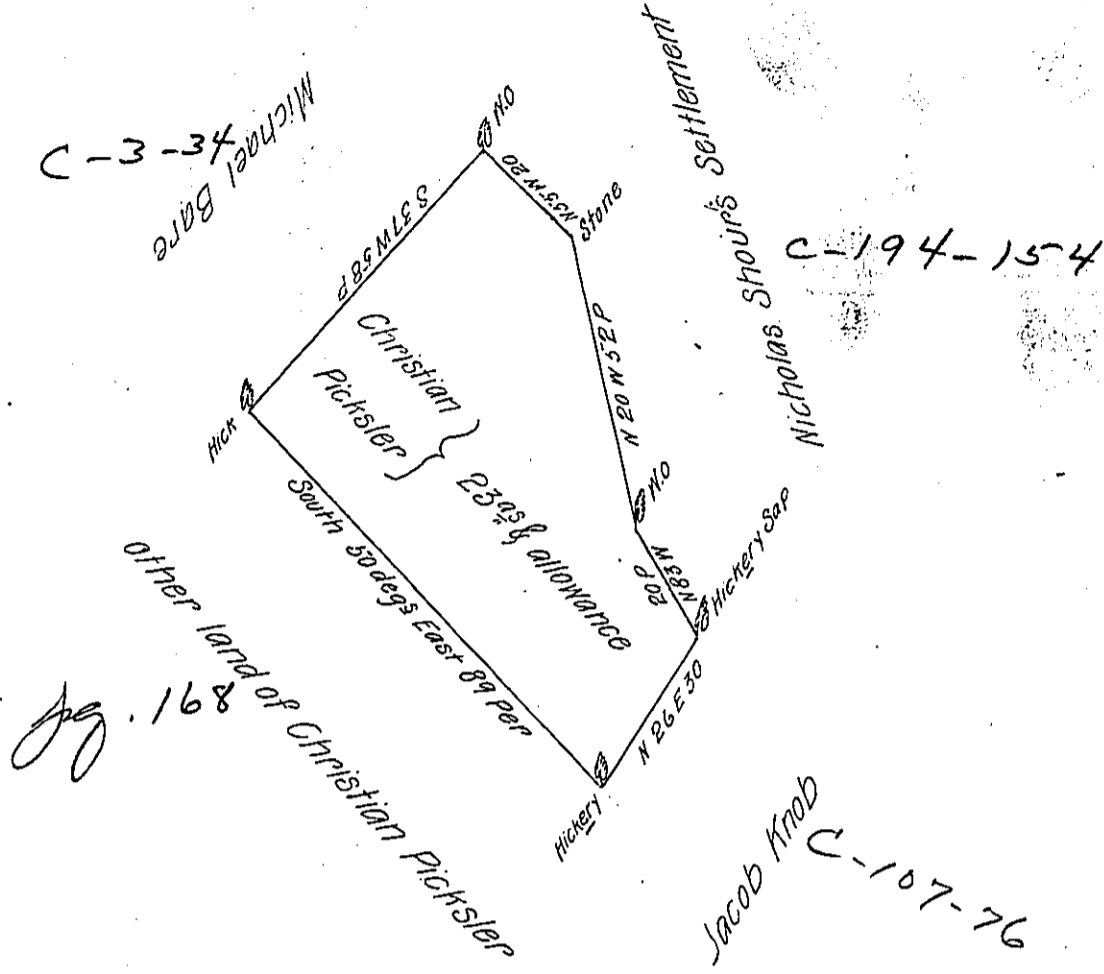 C-3-34
Michael Bare
S 37 W 58 P
N.O
N55W 20
Stone
Nicholas Shour's Settlement
C-194-154
N 20 W 52 P
Christian
Picksler
23as & allowance
Hick
N.O
N83W
20P
Hickery Sap
South 50 degs East 89 Per
N 26 E 30
Hickery
other land of Christian Picksler
pg. 168
Jacob Knob
C-107-76